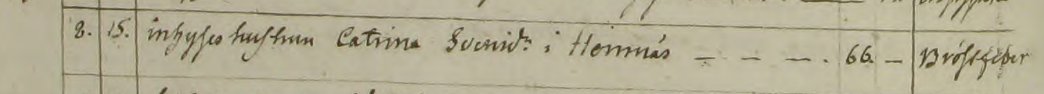 8. 15. inhyses hustrun Catrina Svensdr i Hemmås — — — . 66. — Bröstfeber